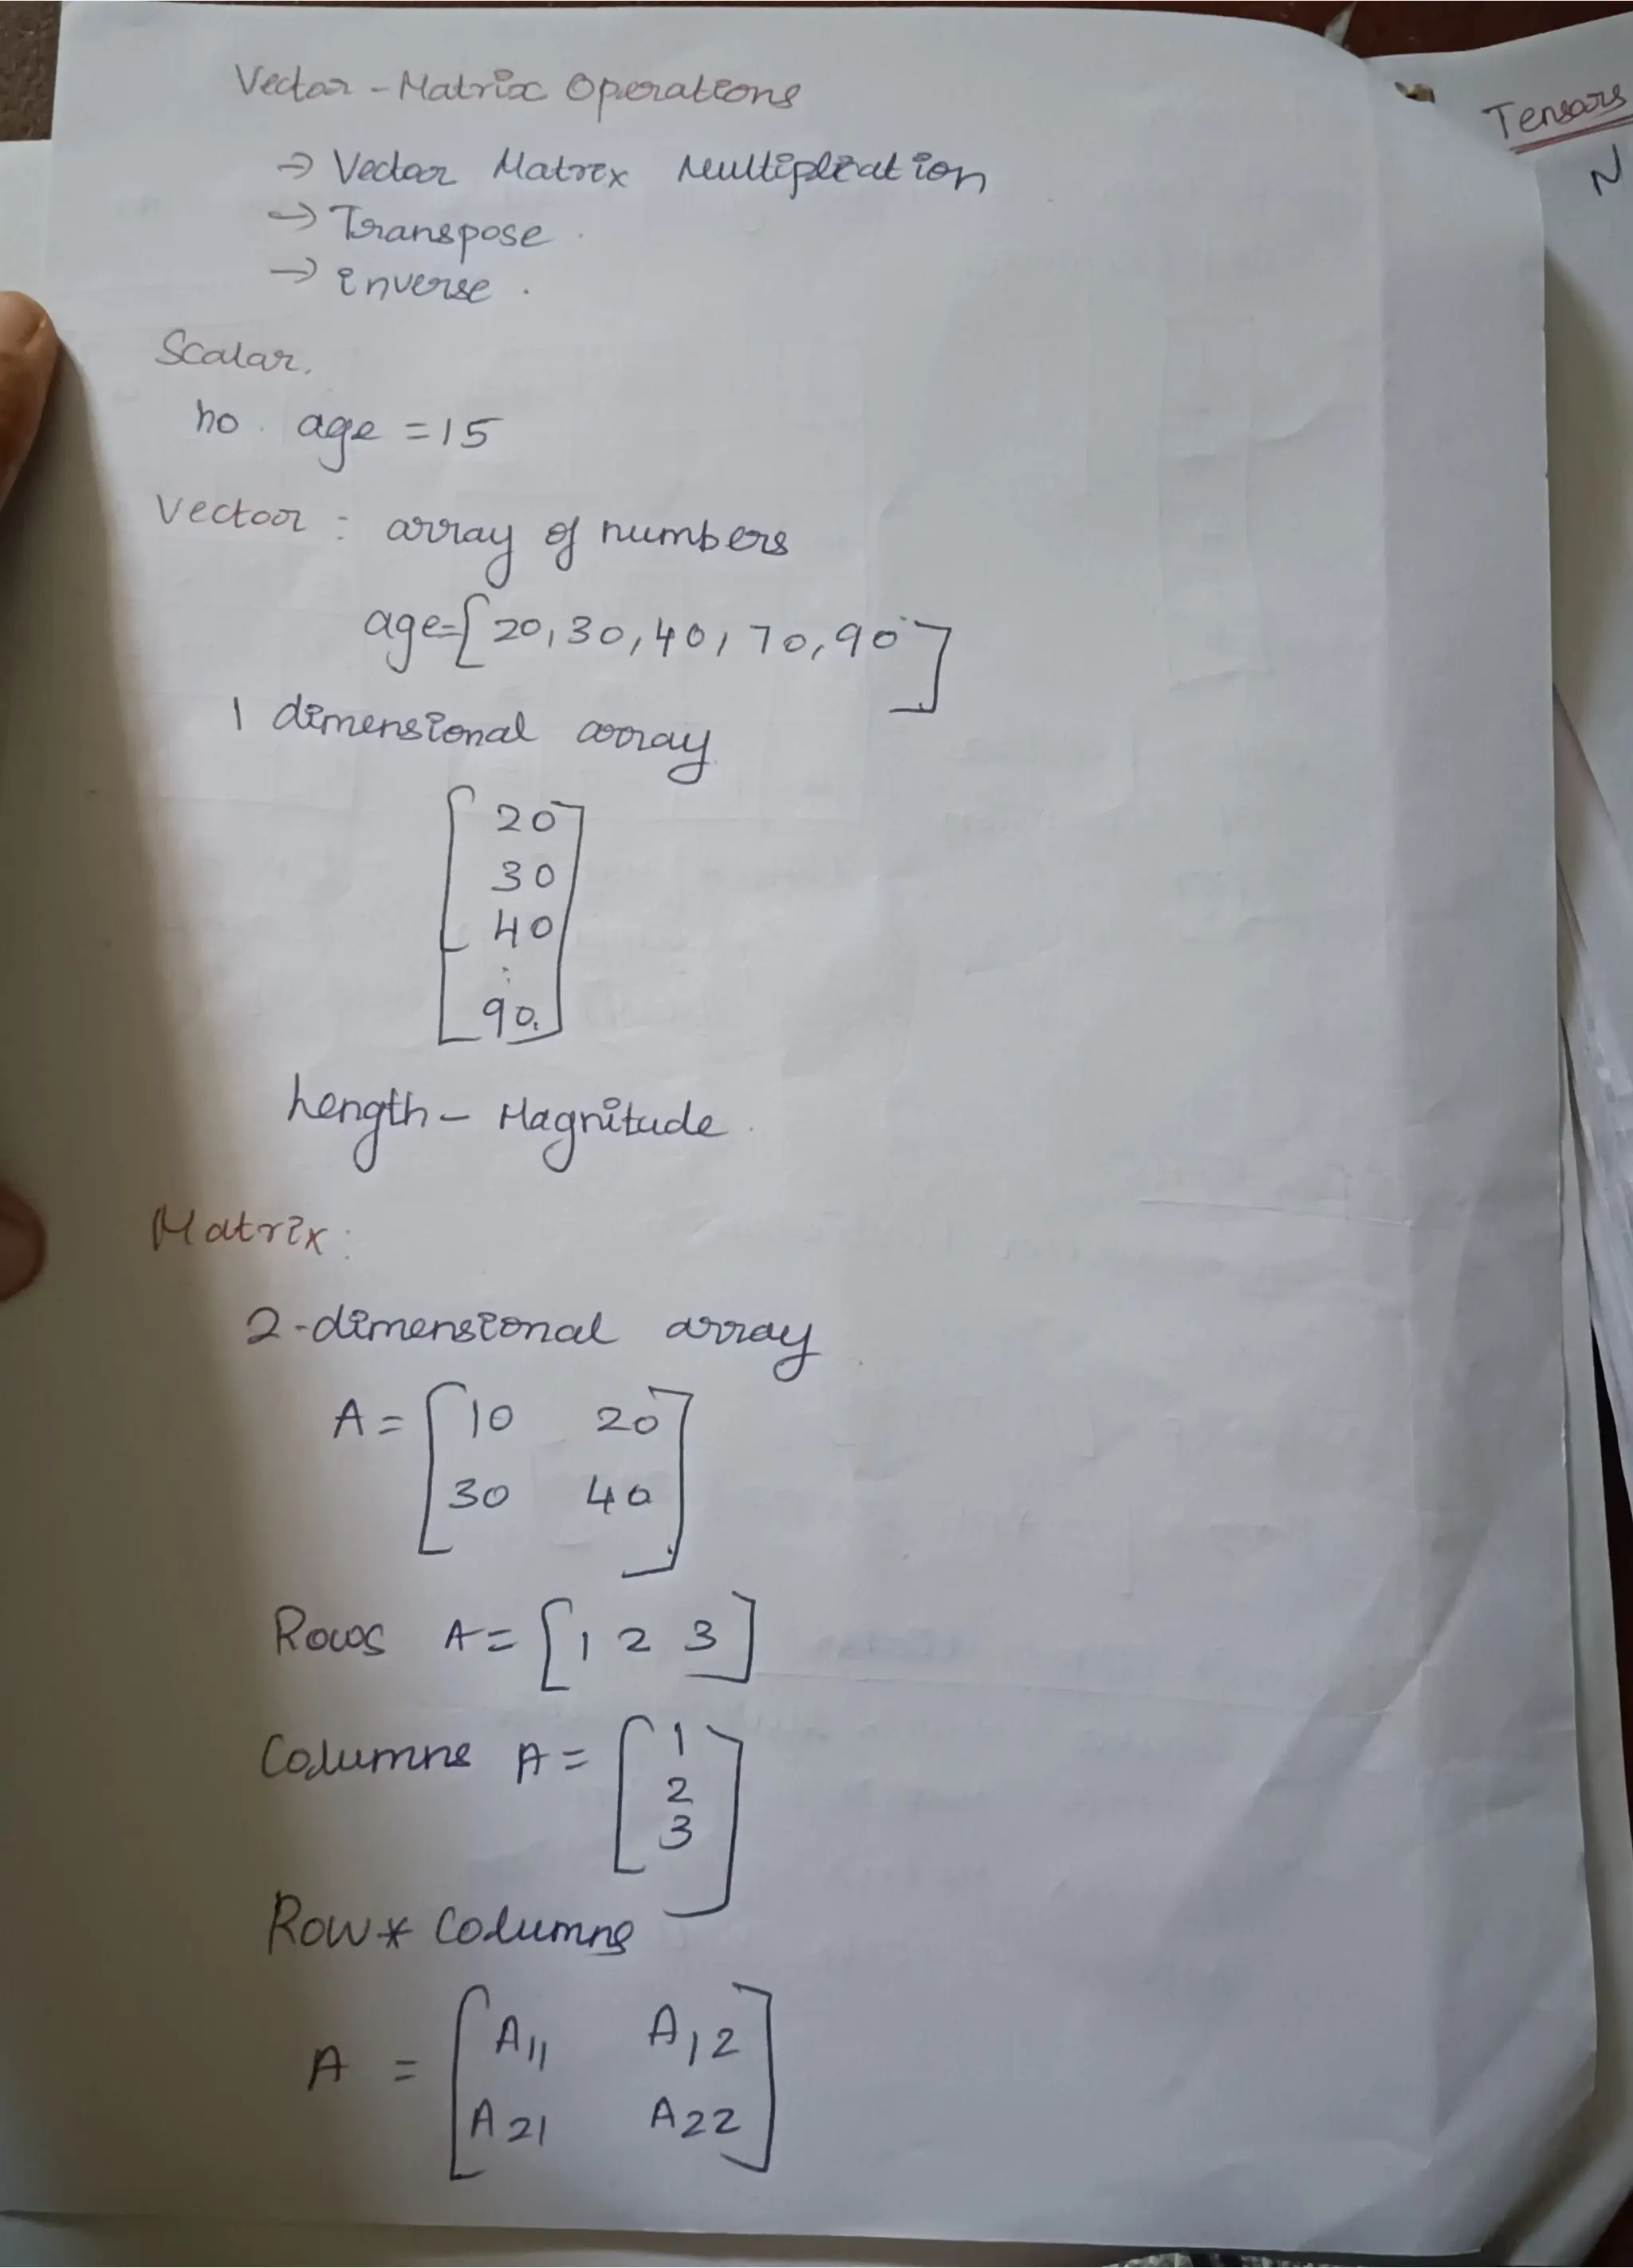 Vector - Matrix Operations
→ Vector Matrix Multiplication
→ Transpose
→ inverse.
Scalar.
no. age = 15
Vector : array of numbers
age=[20,30,40,70,90]
1 dimensional array
[20
30
40
:
90.]
Length - Magnitude
Matrix:
2-dimensional array
A = [10 20
30 40]
Rows A = [1 2 3]
Columns A = [1
2
3]
Row * Columns
A = [A11 A12
A21 A22]
Tensors
N